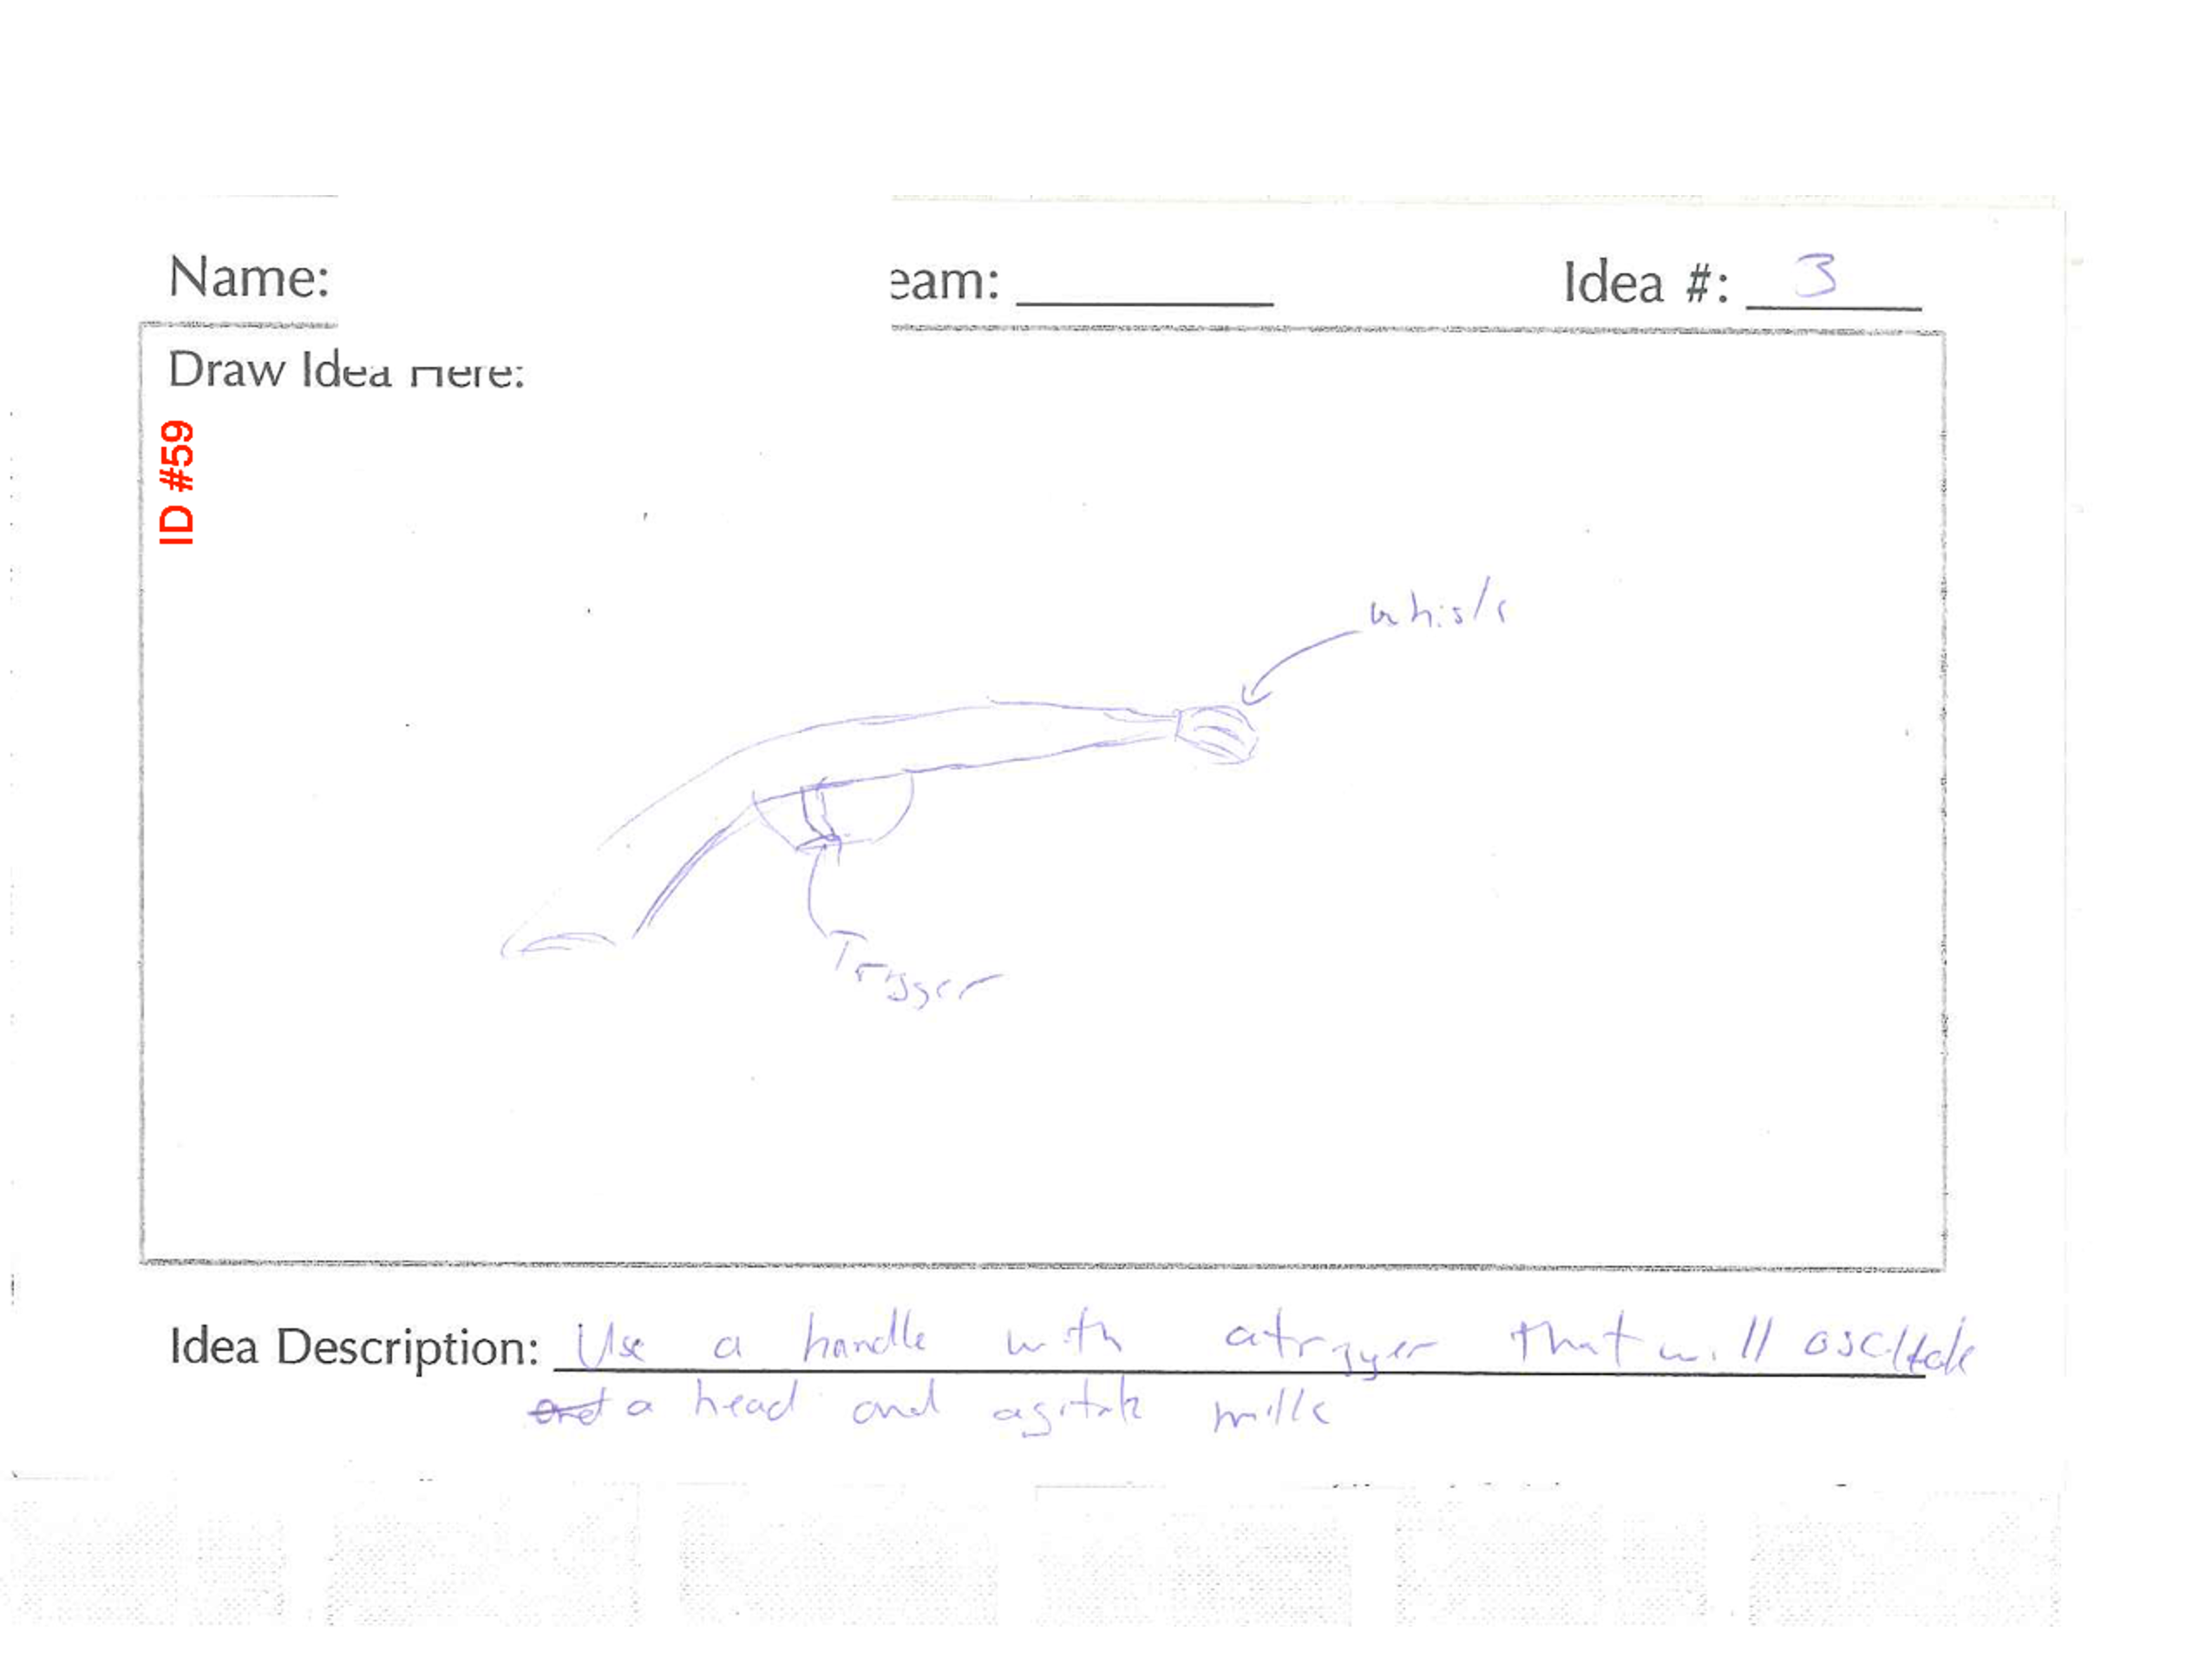 Name:
eam:
Idea #: 3
Draw Idea Here:
ID #59
whisk
Trigger
Idea Description: Use a handle with a trigger that will oscillate
a head and agitate milk